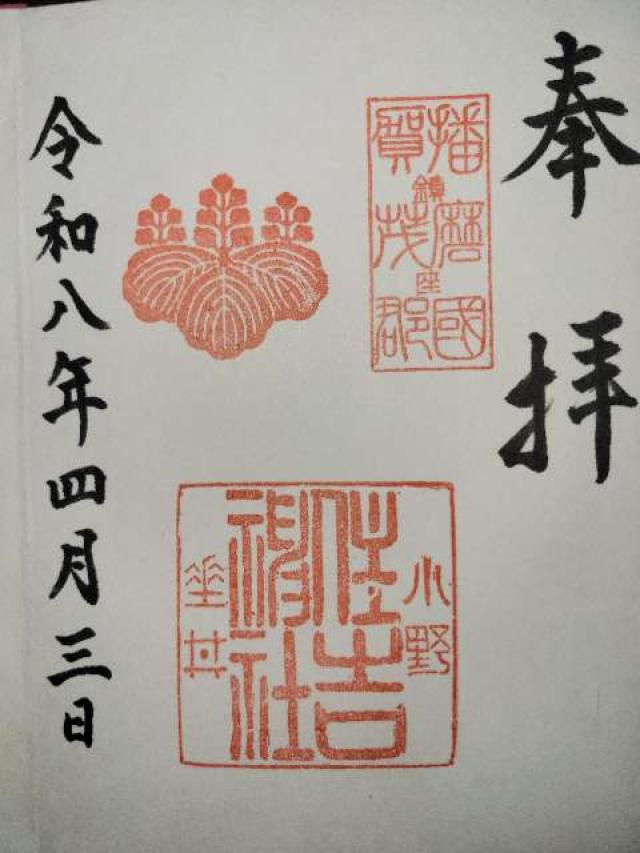 奉拝
播磨國
鎮座
賀茂郡
小野
住吉
神社
垂井
令和八年四月三日